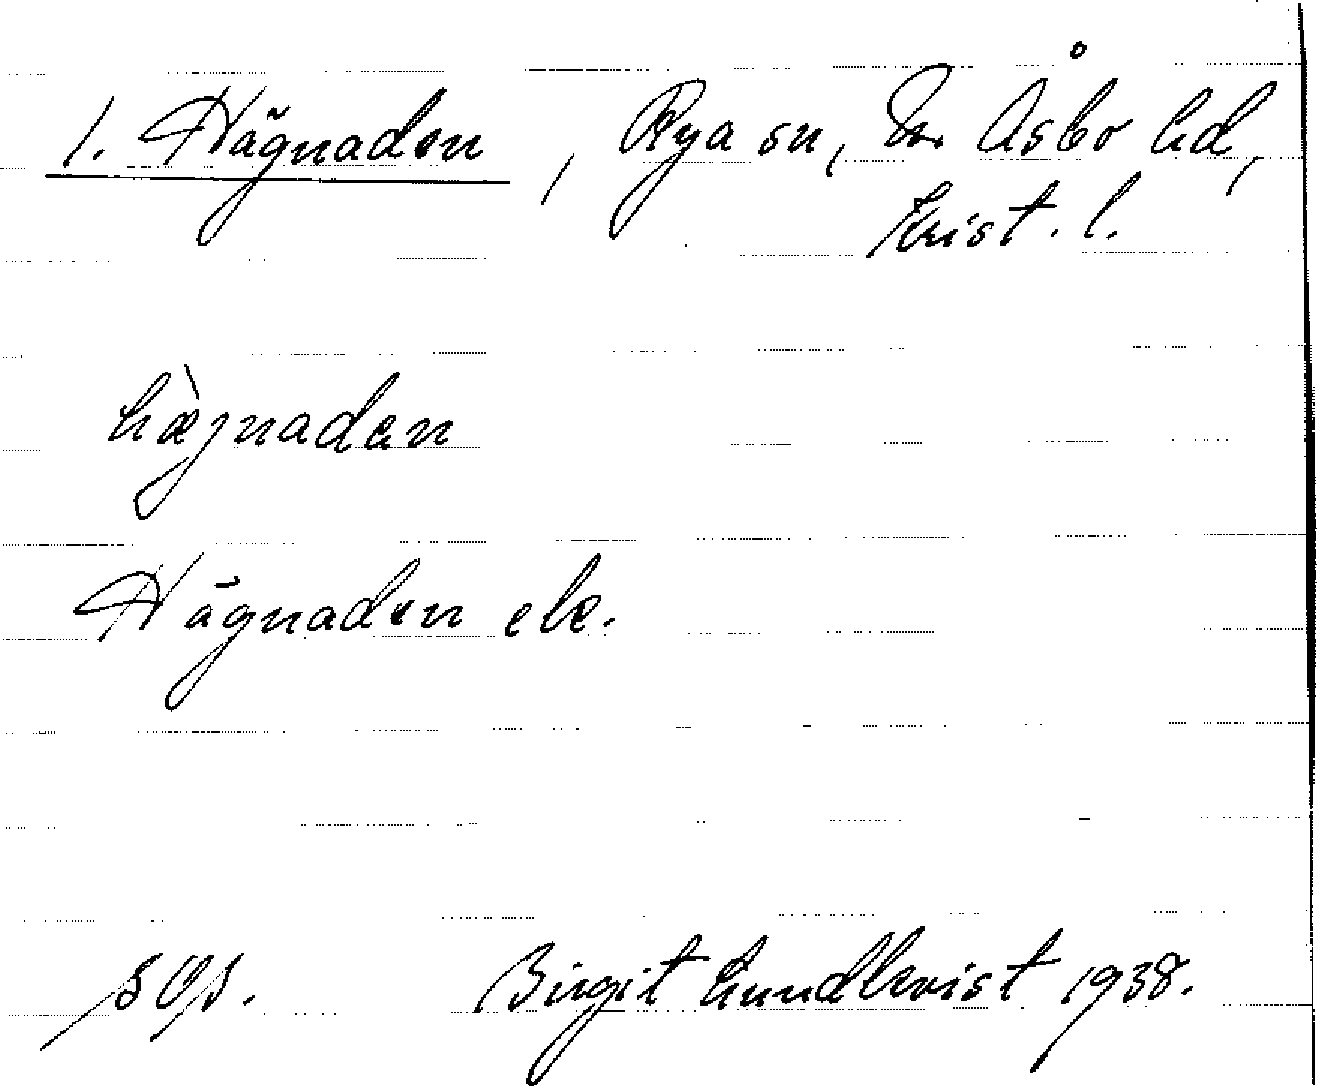 1. Hägnaden, Rya sn, N. Åsbo hd,
Krist. l.
hæ̀jnadan
Hägnaden ek.
Birgit Lundkvist 1938.